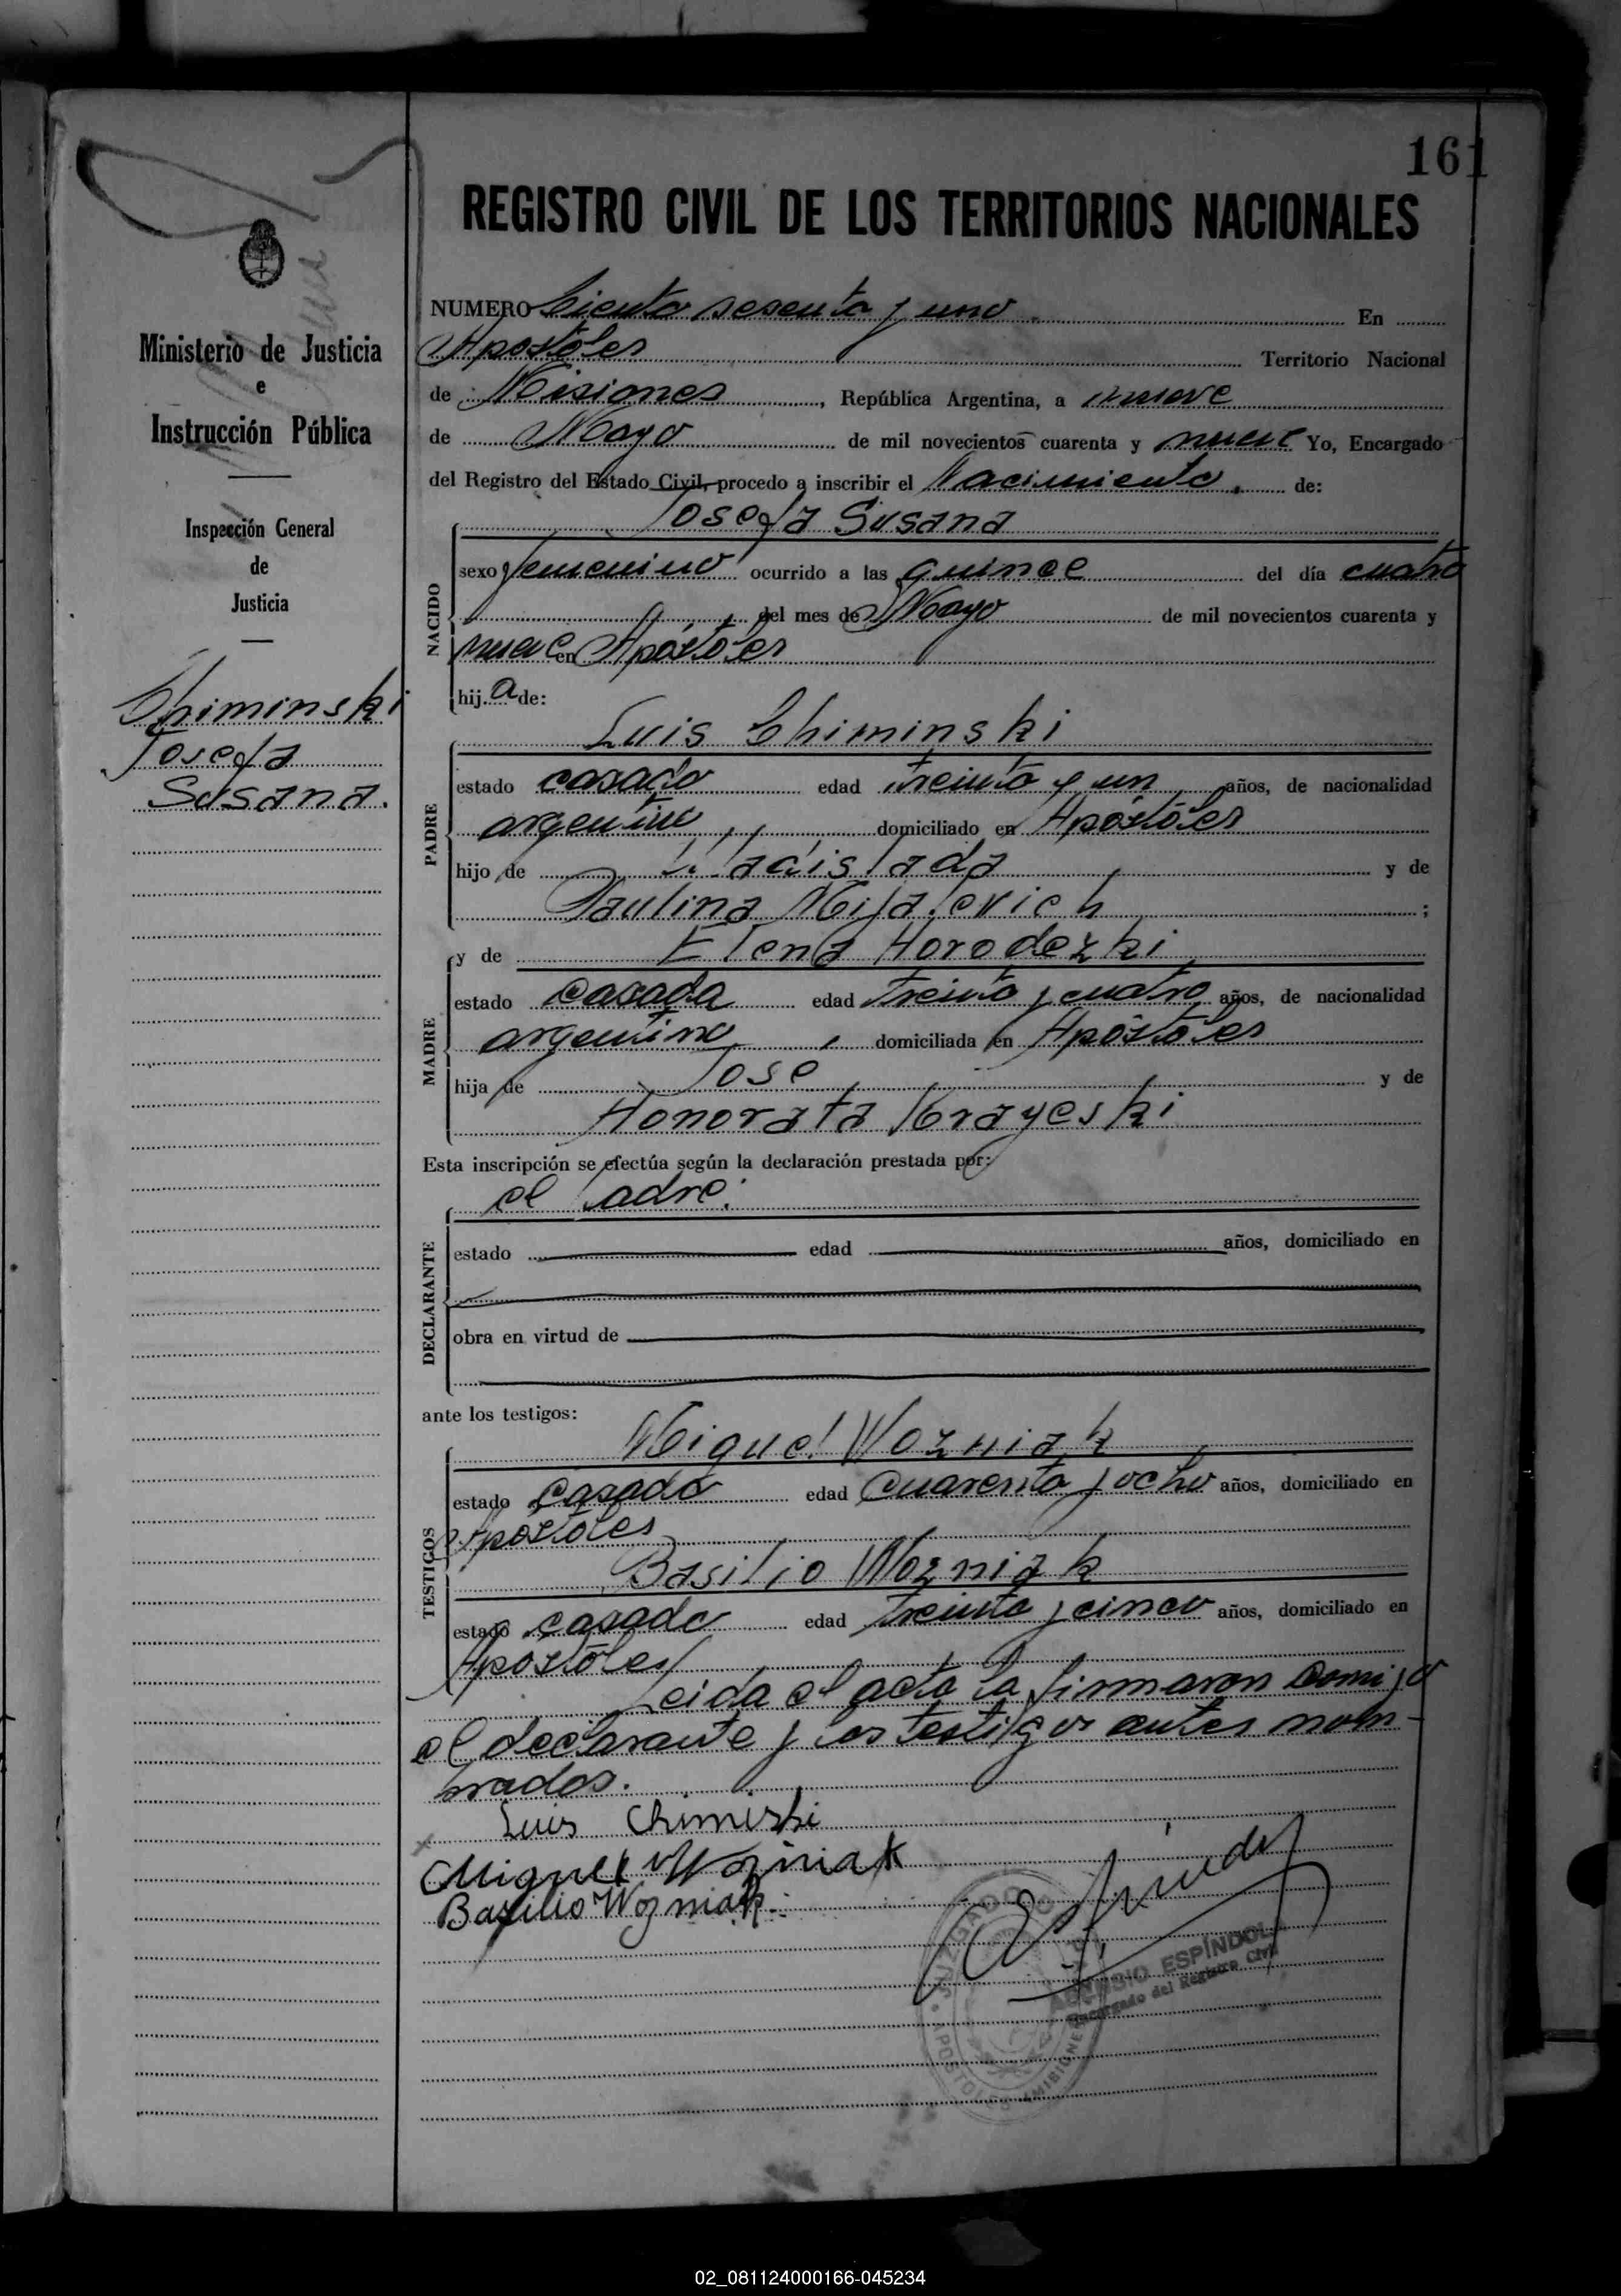 161
REGISTRO CIVIL DE LOS TERRITORIOS NACIONALES
Ministerio de Justicia
e
Instrucción Pública
Inspección General
de
Justicia
Chiminski
Josefa
Susana.
NUMERO Ciento sesenta y uno. En
Apóstoles Territorio Nacional
de Misiones, República Argentina, a nueve
de Mayo de mil novecientos cuarenta y nueve Yo, Encargado
del Registro del Estado Civil, procedo a inscribir el Nacimiento. de:
NACIDO
Josefa Susana
sexo femenino ocurrido a las quince del día cuatro
del mes de Mayo de mil novecientos cuarenta y
nueve en Apóstoles
hij a de:
PADRE
Luis Chiminski
estado casado edad treinta y un años, de nacionalidad
argentino, domiciliado en Apóstoles
hijo de y de
Paulina
y de Elena Horodezki
MADRE
estado casada edad treinta y cuatro años, de nacionalidad
argentina, domiciliada en Apóstoles
hija de José y de
Honorata Krayeski
Esta inscripción se efectúa según la declaración prestada por:
el padre.
DECLARANTE
estado edad años, domiciliado en
obra en virtud de
ante los testigos:
TESTIGOS
Miguel Wozniak
estado casado edad cuarenta y ocho años, domiciliado en
Apóstoles
Basilio Wozniak
estado casado edad treinta y cinco años, domiciliado en
Apóstoles
Leida el acta la firmaron comigo
el declarante y los testigos antes nom-
brados.
Luis Chimiski
Miguel Wozniak
Bazilio Wozniak.
JUZGADO
APOSTOLES MISIONES
ESPÍNDOLA
Encargado del Registro Civil
02_081124000166-045234